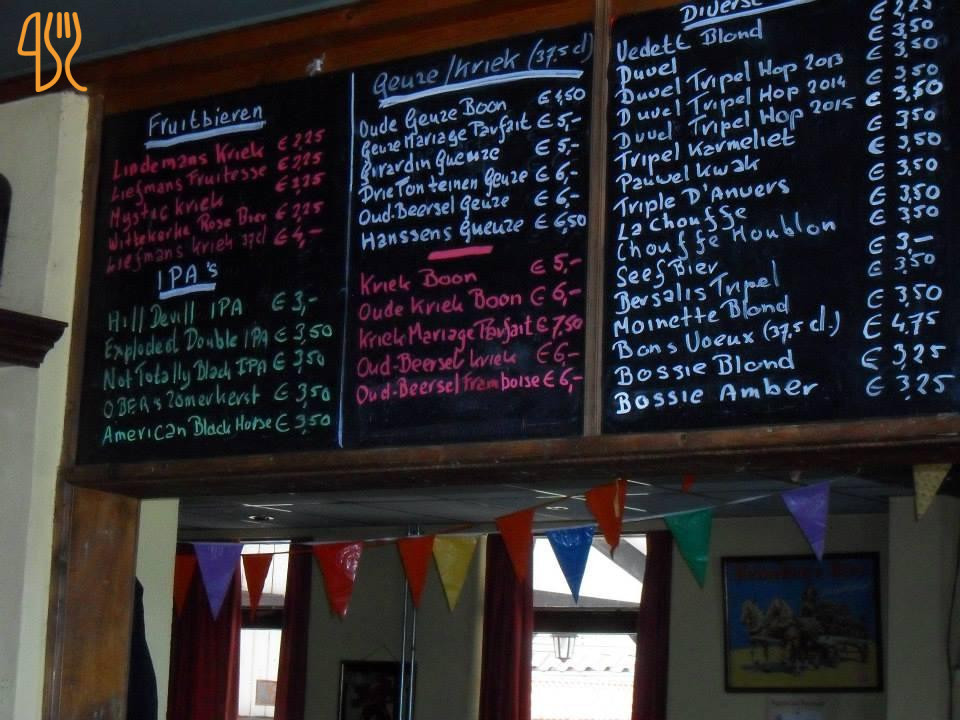 Fruitbieren
Lindemans Kriek € 2,25
Liefmans Fruitesse € 2,25
Mystic Kriek € 2,25
Wittekerke Rose Bier € 2,25
Liefmans Kriek 37cl € 4,-
IPA's
Hill Devill IPA € 3,-
Exploded Double IPA € 3,50
Not Totally Black IPA € 3,50
OBER's Zomerherst € 3,50
American Black Horse € 3,50
Geuze/Kriek (37,5 cl)
Oude Geuze Boon € 4,50
Geuze Mariage Parfait € 5,-
Girardin Gueuze € 5,-
Drie Fonteinen Geuze € 6,-
Oud-Beersel Geuze € 6,-
Hanssens Gueuze € 6,50
Kriek Boon € 5,-
Oude Kriek Boon € 6,-
Kriek Mariage Parfait € 7,50
Oud-Beersel Kriek € 6,-
Oud-Beersel Framboise € 6,-
Diverse
Vedett Blond € 2,25
Duvel € 3,50
Duvel Tripel Hop 2013 € 3,50
Duvel Tripel Hop 2014 € 3,50
Duvel Tripel Hop 2015 € 3,50
Tripel Karmeliet € 3,50
Pauwel Kwak € 3,50
Triple D'Anvers € 3,50
La Chouffe € 3,50
Chouffe Houblon € 3,50
Seef Bier € 3,-
Bersalis Tripel € 3,50
Moinette Blond € 3,50
Bons Voeux (37,5 cl.) € 4,75
Bossie Blond € 3,25
Bossie Amber € 3,25